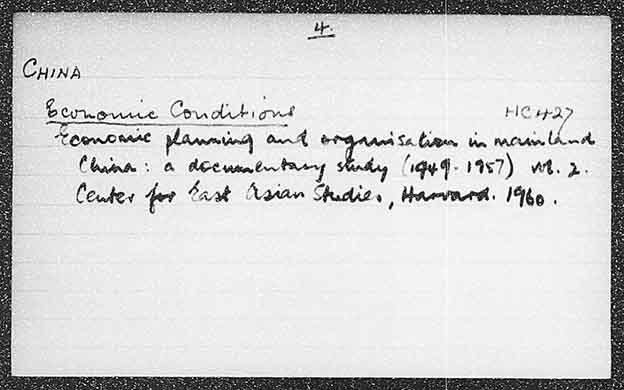 4.
CHINA
Economic Conditions HC427
Economic planning and organisation in mainland
China: a documentary study (1949-1957) vol. 2.
Center for East Asian Studies, Harvard. 1960.